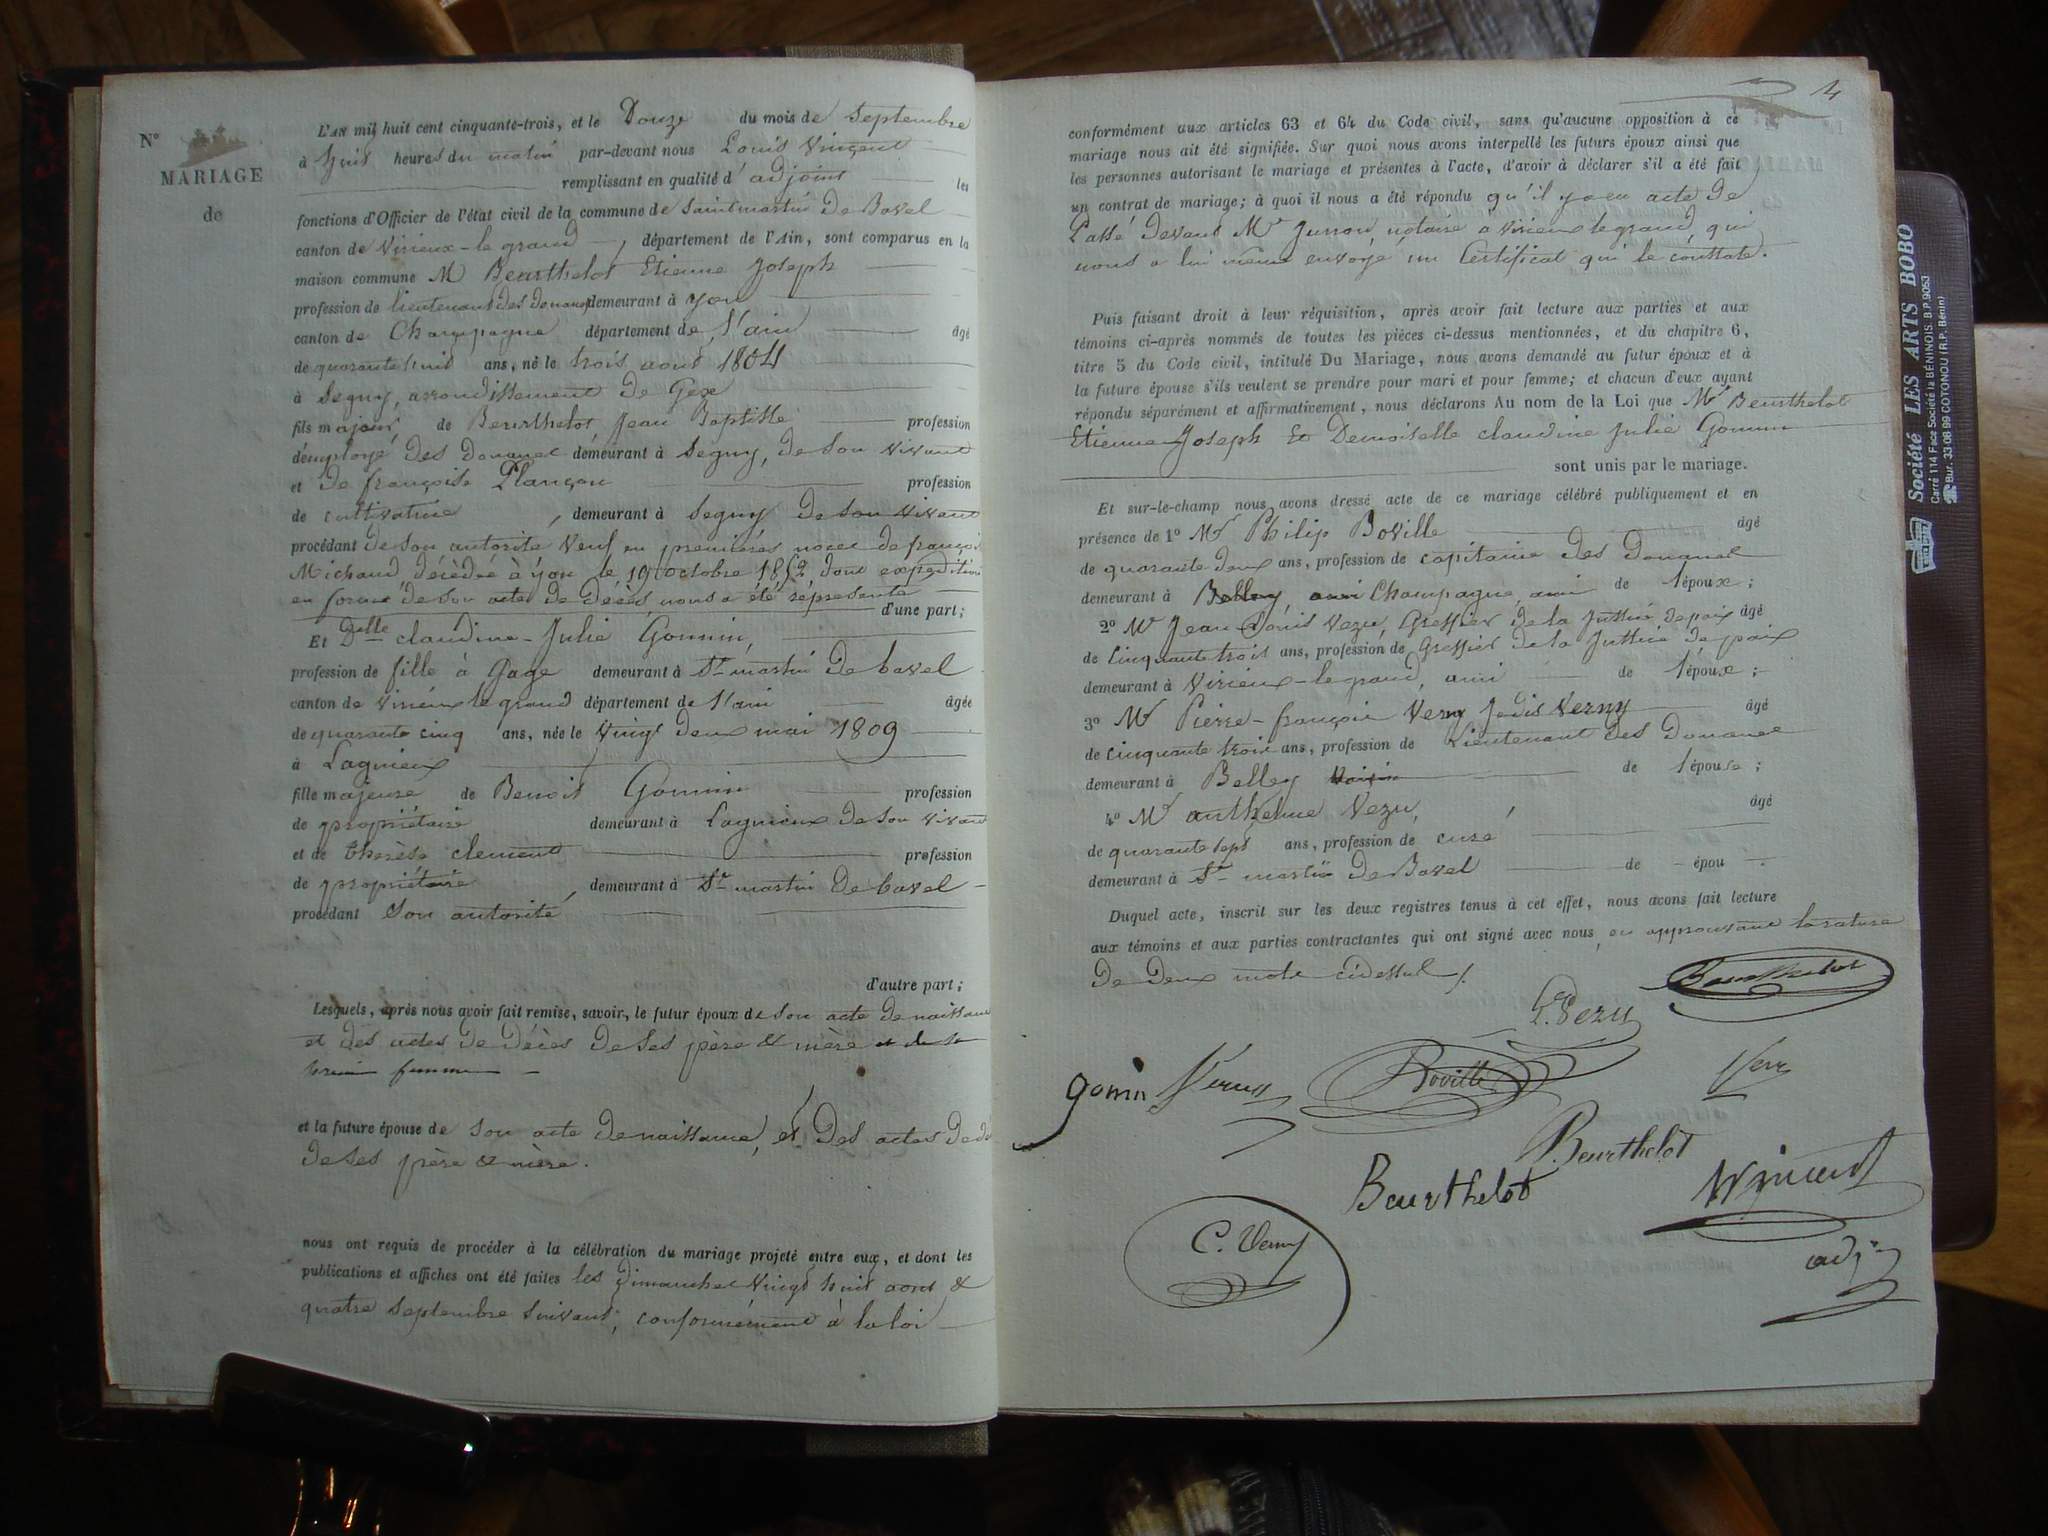 N°
MARIAGE
de
L'AN mil huit cent cinquante-trois, et le Douze du mois de Septembre
à huit heures du matin par-devant nous Louis Vincent
remplissant en qualité d'adjoint les
fonctions d'Officier de l'état civil de la commune de Saint martin De Bavel
canton de Virieux-le grand, département de l'Ain, sont comparus en la
maison commune M Beurthelot Etienne Joseph
profession de lieutenant des douanes demeurant à yon
canton de Champagne département de l'ain âgé
de quarante huit ans, né le trois aout 1804
à Segny, arrondissement de Gex
fils majeur de Beurthelot Jean Baptiste profession
d'employé des Douanes demeurant à Segny, de son vivant
et de françoise Plançon profession
de cultivatrice, demeurant à Segny de son vivant
procédant de son autorité veuf en premières noces de françoise
Michaud, décédée à yon le 19 octobre 1852, dont expédition
en forme de son acte de Décès nous a été représenté d'une part;
Et Dlle claudine-Julie Gonnin,
profession de fille à Gage demeurant à St martin De bavel
canton de Virieux le grand département de l'ain âgée
de quarante cinq ans, née le vingt deux mai 1809
à Lagnieux
fille majeure de Benoit Gonnin profession
de propriétaire demeurant à Lagnieux de son vivant
et de therèse clement profession
de propriétaire, demeurant à St martin De bavel
procédant Son autorité
d'autre part;
Lesquels, après nous avoir fait remise, savoir, le futur époux de son acte de naissance
et des actes De Décès De ses père & mère et de sa
femme
et la future épouse de son acte de naissance, et Des actes de dé
De ses père & mère.
nous ont requis de procéder à la célébration du mariage projeté entre eux, et dont les
publications et affiches ont été faites les Dimanches vingt huit aout &
quatre septembre suivant, conformément à la loi
4
conformément aux articles 63 et 64 du Code civil, sans qu'aucune opposition à ce
mariage nous ait été signifiée. Sur quoi nous avons interpellé les futurs époux ainsi que
les personnes autorisant le mariage et présentes à l'acte, d'avoir à déclarer s'il a été fait
un contrat de mariage; à quoi il nous a été répondu qu'il y a eu acte de
Passé devant Me notaire à virieux le grand, qui
nous a lui même envoyé un Certificat qui le constate.
Puis faisant droit à leur réquisition, après avoir fait lecture aux parties et aux
témoins ci-après nommés de toutes les pièces ci-dessus mentionnées, et du chapitre 6,
titre 5 du Code civil, intitulé Du Mariage, nous avons demandé au futur époux et à
la future épouse s'ils veulent se prendre pour mari et pour femme; et chacun d'eux ayant
répondu séparément et affirmativement, nous déclarons Au nom de la Loi que Mr Beurthelot
Etienne Joseph Et Demoiselle claudine Julie Gonnin
sont unis par le mariage.
Et sur-le-champ nous avons dressé acte de ce mariage célébré publiquement et en
présence de 1° Mr Philip Boville âgé
de quarante deux ans, profession de capitaine des Douanes
demeurant à Belley ami Champagne, ami de l'époux;
2° Mr Jean Louis Vezu, Greffier de la Justice de paix âgé
de Cinquante trois ans, profession de Greffier de la Justice de paix
demeurant à Virieux-le grand, ami de l'époux;
3° Mr Pierre-françois Verny je dis Verny âgé
de cinquante trois ans, profession de Lieutenant des Douanes
demeurant à Belley de l'épouse;
4° Mr anthelme Vezu, âgé
de quarante sept ans, profession de curé
demeurant à St martin De Bavel de épou
Duquel acte, inscrit sur les deux registres tenus à cet effet, nous avons fait lecture
aux témoins et aux parties contractantes qui ont signé avec nous, en approuvant la rature
De Deux mots cidessus /.
Beurthelot
Vezu
gonin Verny Boville
Beurthelot
Beurthelot Vincent
C. Verny
adj
Société LES ARTS BOBO
Carré 114 Face Société la BÉNINOIS. B.P.9053
Bur. 33 08 99 COTONOU (R.P. Bénin)